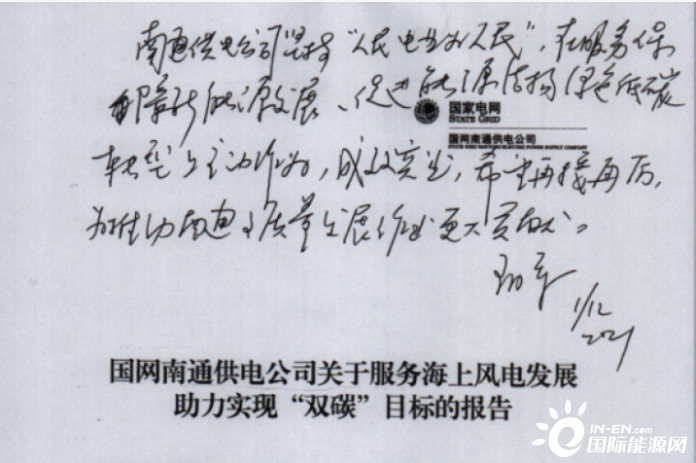 南通供电公司坚持“人民电业为人民”，在服务保
障新能源发展、促进能源结构绿色低碳
国家电网
STATE GRID
国网南通供电公司
转型上主动作为，成效突出，希望再接再厉，
为推动南通高质量发展作出更大贡献。
1/12
2021
国网南通供电公司关于服务海上风电发展
助力实现“双碳”目标的报告
IN-EN.com
国际能源网